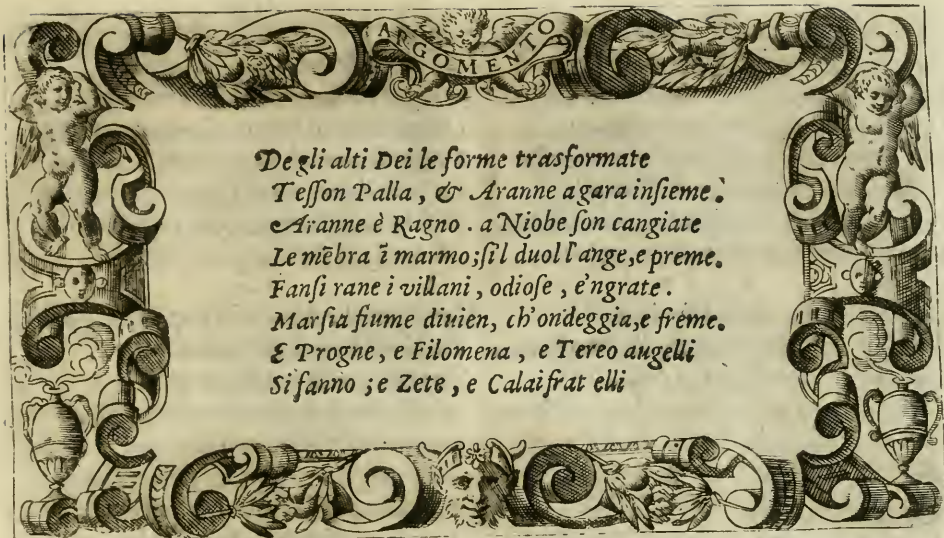 ARGOMENTO
De gli alti Dei le forme trasformate
Teſſon Palla, & Aranne a gara inſieme.
Aranne è Ragno. a Niobe ſon cangiate
Le mẽbra ĩ marmo; ſi'l duol l'ange, e preme.
Fanſi rane i villani, odioſe, e'ngrate.
Marſia fiume diuien, ch'ondeggia, e freme.
E Progne, e Filomena, e Tereo augelli
Si fanno; e Zete, e Calai frat elli